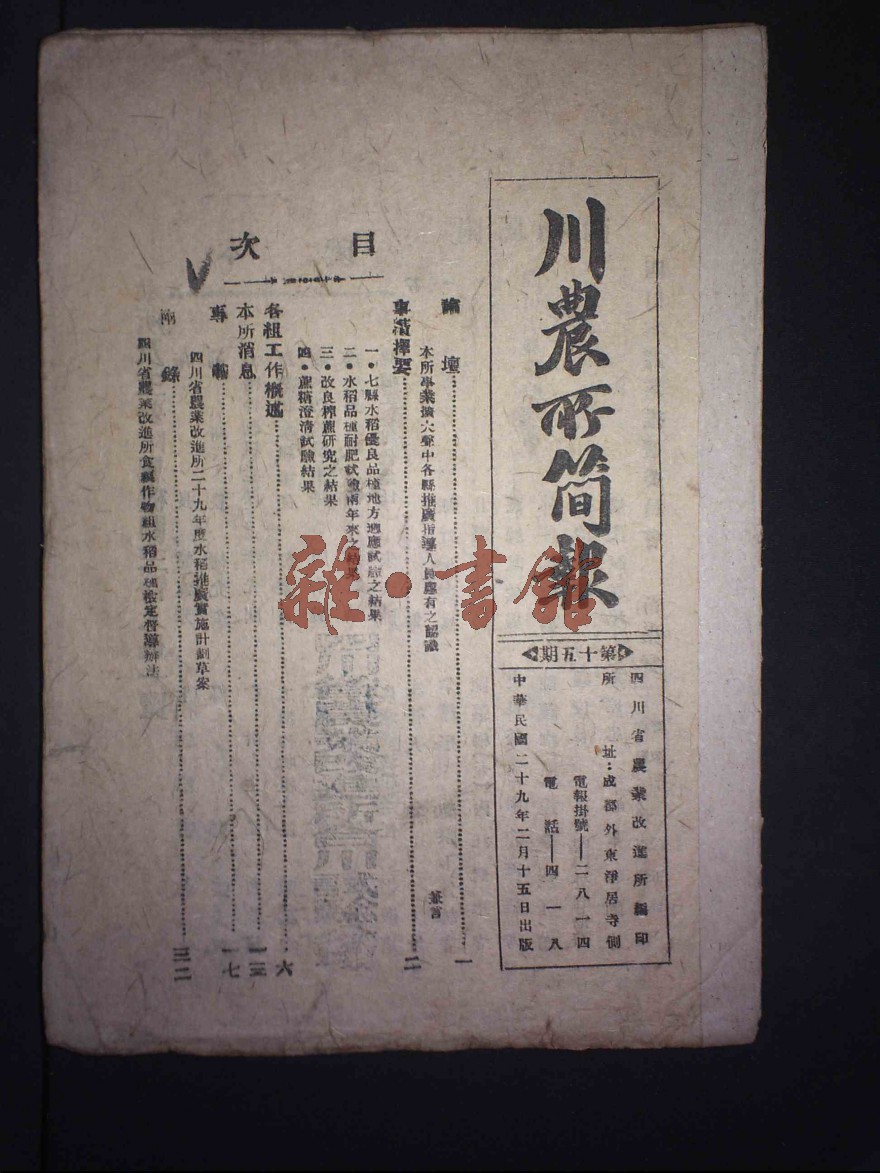 川農所简報
第十五期
四川省農業改進所編印
所址：成都外東淨居寺側
電報掛號——二八一四
電話——四一八
中華民國二十九年二月十五日出版
目次
論壇 一
本所事業擴大聲中各縣推廣指導人員應有之認識 兼言
事業擇要 二
一・七縣水稻優良品種地方適應試驗之結果
二・水稻品種耐肥試驗兩年來之結果
三・改良榨蔗研究之結果
四・蔗糖澄清試驗結果
各組工作概述 六
本所消息 一三
專輯 一七
四川省農業改進所二十九年度水稻推廣實施計劃草案
附錄 三二
四川省農業改進所食糧作物組水稻品種檢定督導辦法
雜・書館